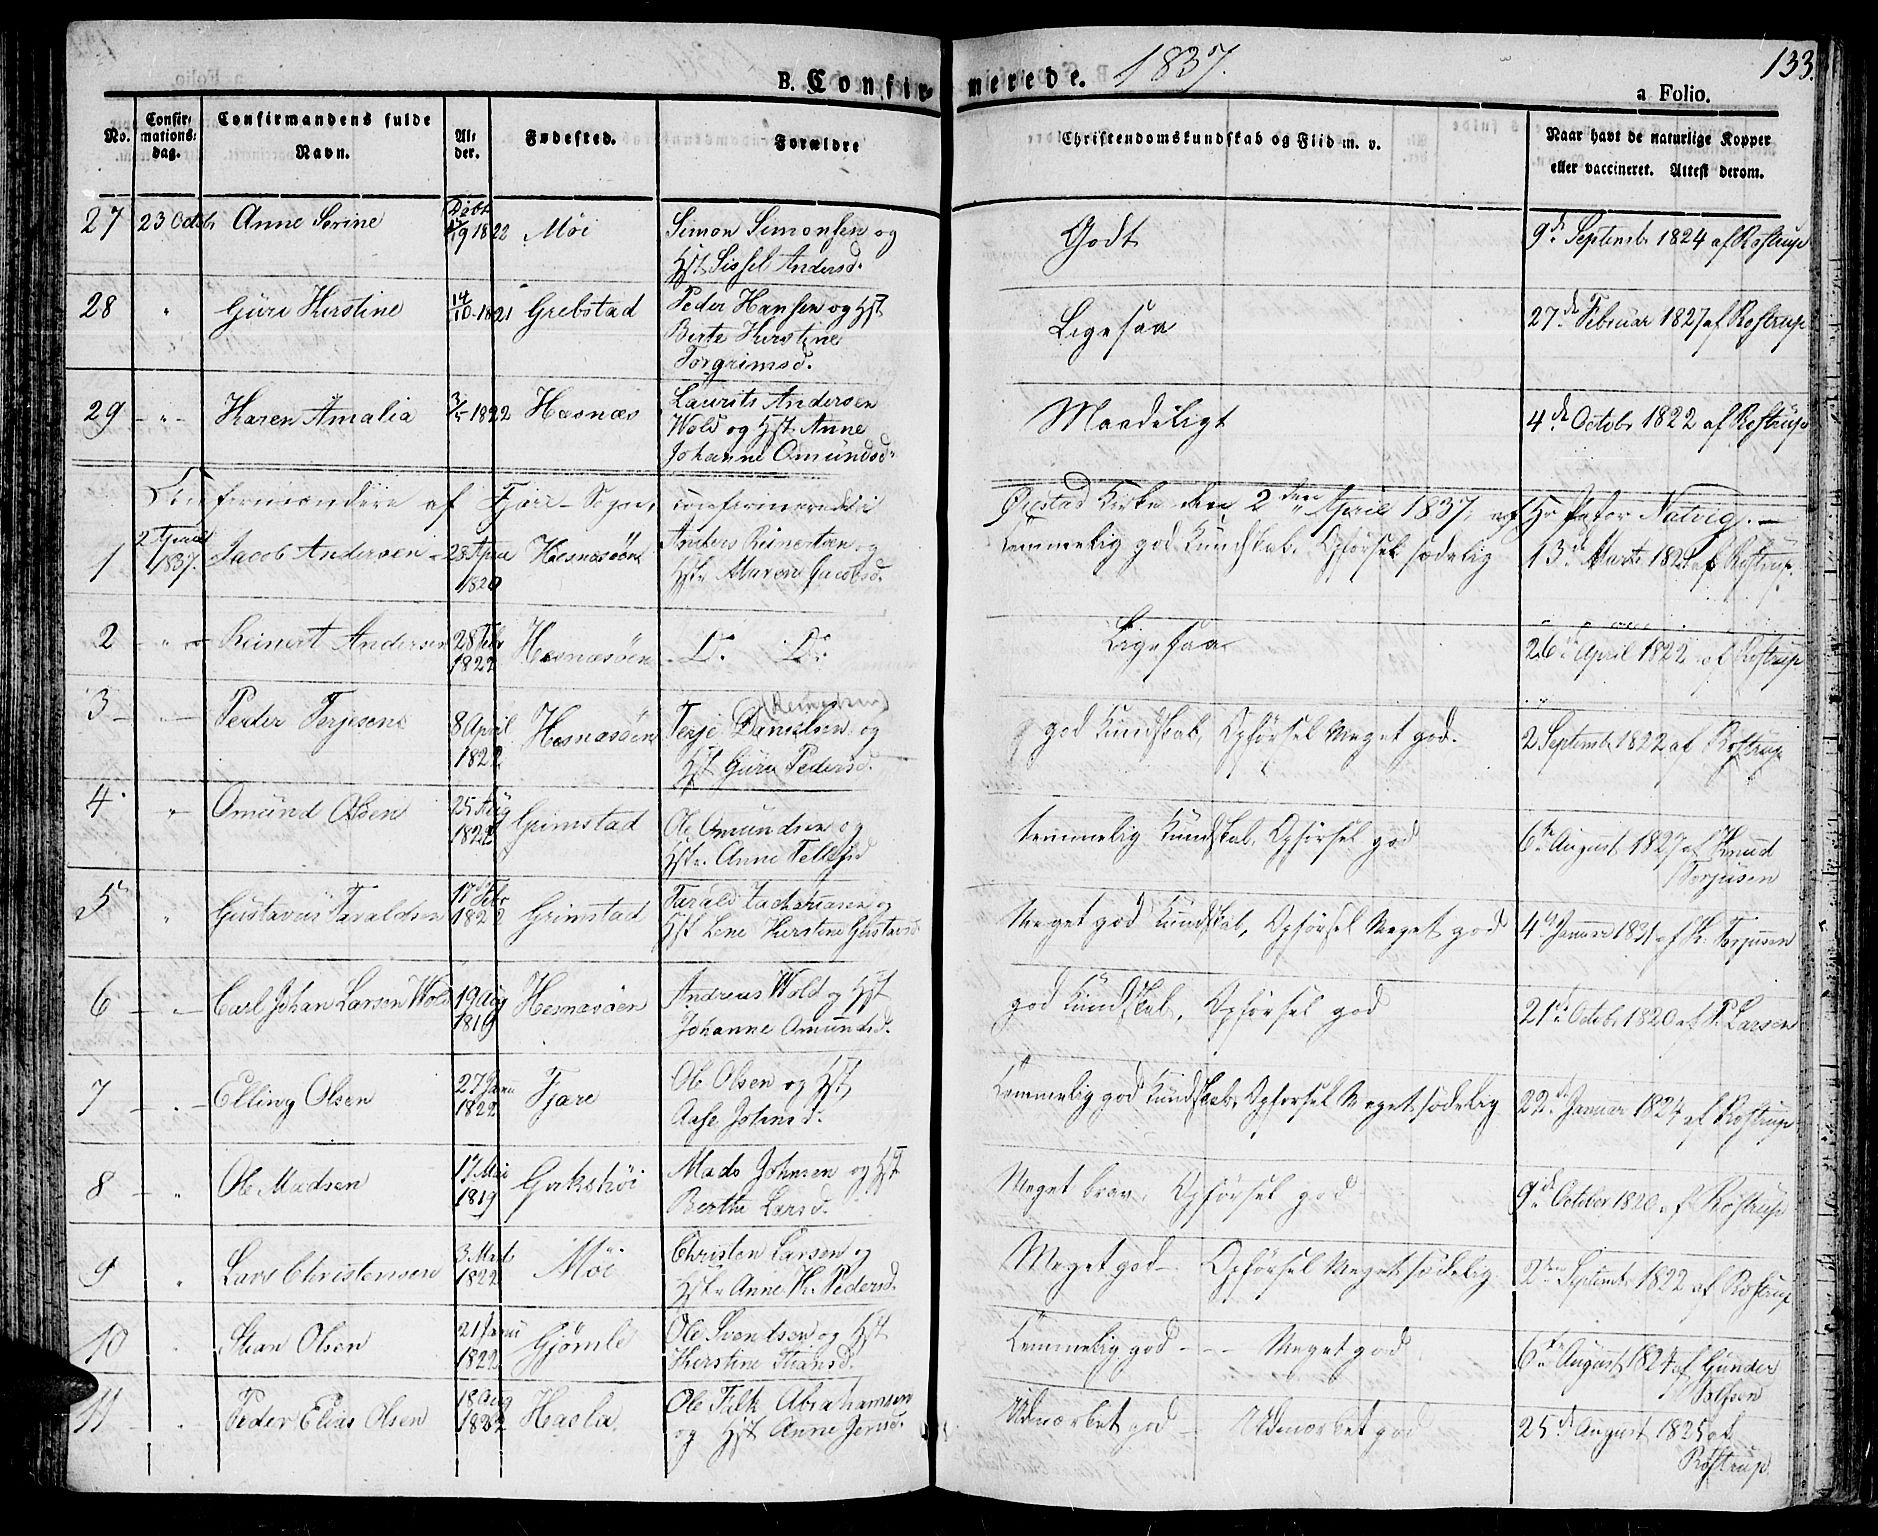 B. Confirmerede. 1837. 133.
a Folio.
No. Confirmations-dag. Confirmandens fulde Navn. Alder. Fødested. Forældre Christendomskundskab og Flid m. v. Naar havt de naturlige Kopper eller vaccineret. Attest derom.
27 23 Octob Anne Serine Døbt 1822 Möi Simon Simonsen og Hst Sissel Andersd. Godt 9de Septembr 1824 af Rostrup
28 " Güri Kirstine 14/10 1821 Grebstad Peder Hansen og Hst Berte Kirstine Torgrimsd. Ligesaa 27de Februar 1827 af Rostrup
29 - " - Karen Amalia 1822 Hesnæs Laurits Andersen Wold og Hst Anne Johanne Omündsd. Maadeligt 4de Octobr 1822 af Rostrup
af Fjære Sogn, confirmerede i Øiestad Kirke den 2den April 1837, af Hr Pastor Natvig. —
1 2 April 1837. Jacob Andersen 28 April 1820 Hesnæsöen Anders Reinertsen og Hstr Maren Jacobsd. Temmelig god Kundskab. Opførsel sædelig 13de Marts af Rostrup.
2 " Reinert Andersen 28 Febr 1822 Hesnæsöen Do. Do. Ligesaa 26de April 1822 af Rostrup
3 - " - Peder Terjesen 8 April 1822 Hesnæsöen Terje Danielsen og Hst Güri Pedersd. god Kundskab, Opførsel Meget god. 2 Septembr 1822 af Rostrup
4 " Omünd Olsen 25 Aug 1822 Grimstad Ole Omundsen og Hstr. Anne Tellefsd temmelig Kundskab. Opførsel god 6te August 1827 af Knud Terjusen
5 " Gustavus Taraldsen 17 Febr 1822 Grimstad Tarald Zachariasen og Hst Lene Kirstine Gustavsd Meget god Kundskab, Opførsel Meget god 4de Januar 1831 af K. Terjusen
6 - " - Carl Johan Larsen Wold 19 Aug 1819 Hesnæsöen Andreas Wold og Hst Johanne Omundsd. god Kundskab, Opførsel god 21de Octobr 1820 af P. Larsen
7 - " - Elling Olsen 27 Janu 1822 Fjære Ole Olsen og Hst, Aase Johnsd. Temmelig god Kundskab, Opførsel Meget sædelig 22de Januar 1824 af Rostrup
8 - " Ole Madsen 17 Mai 1819 Mads Johnsen og Hst Berthe Larsd. Meget brav. Opførsel god 9de October 1820 af Rostrup
9 " Lars Christensen 3 Marts 1822 Möi Christen Larsen og Hstr Anne K. Pedersd. Meget god - Opførsel Meget sædelig 2den Septembr 1822 af Rostrup
10 " Olsen 21 1822 Gjömle Ole Svendsen og Hst Kirstine Temmelig god - - - Meget god 6te August 1824 af Gunder
11 " Peder Elias Olsen 18 Aug 1822 Hasla. Ole Falk Abrahamsen og Hst Anne Jensd. Udmærket god - Udmærket god 25de August 1825 af Rostrup